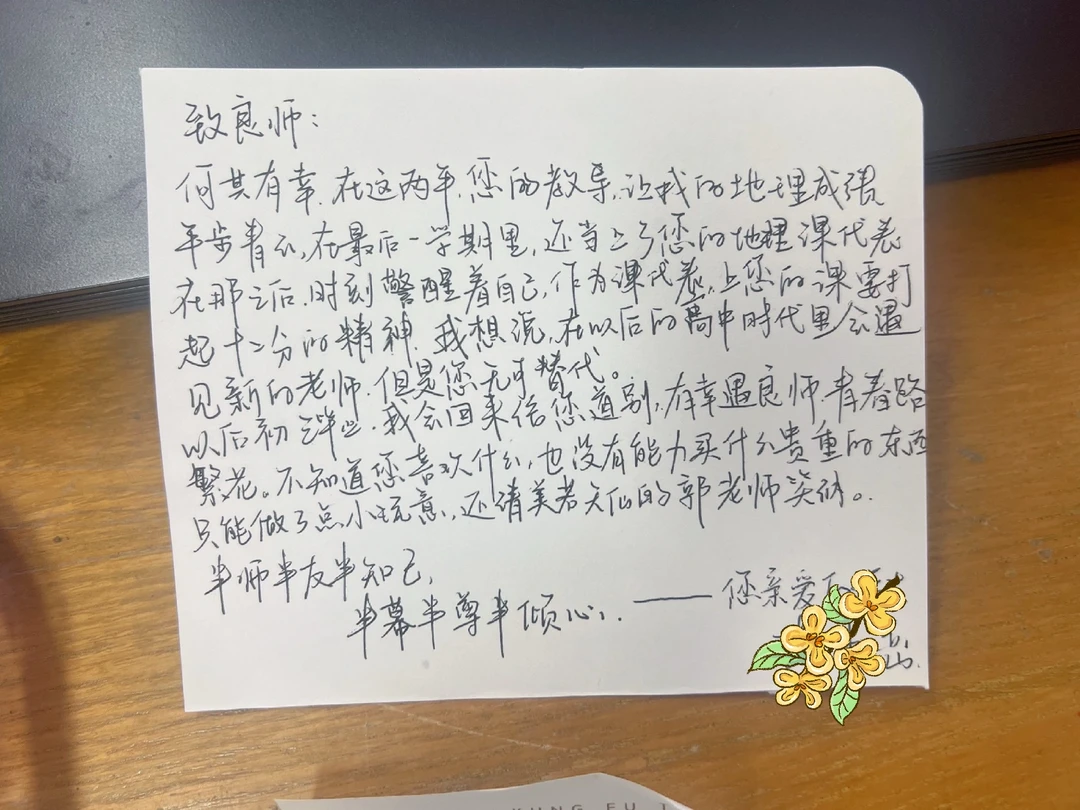 致良师：
何其有幸，在这两年，您的教导，让我的地理成绩
平步青云，在最后一学期里，还当上了您的地理课代表
在那之后，时刻警醒着自己，作为课代表，上您的课要打
起十二分的精神，我想说，在以后的高中时代里会遇
见新的老师，但是您无可替代。
以后初三毕业，我会回来给您道别，有幸遇良师，青春路
繁花。不知道您喜欢什么，也没有能力买什么贵重的东西
只能做了点小玩意，还请美若天仙的郭老师笑纳。
半师半友半知己，
半慕半尊半倾心。
——您亲爱